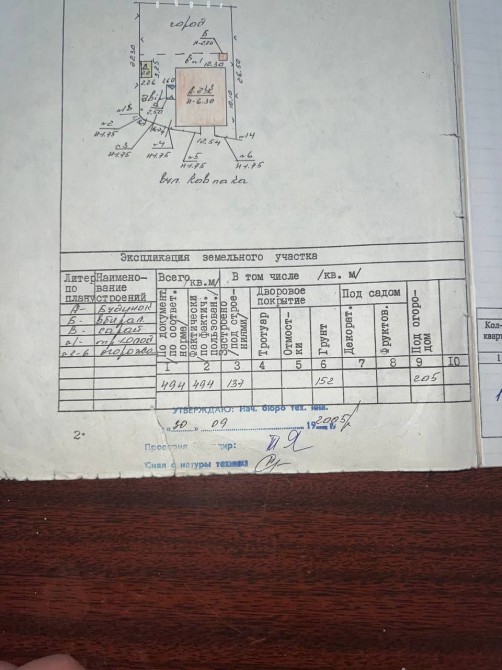 город
Б
22.30
12.30
26.50
3.25
2.26
1.60
2.50
А-2жк
H-6.30
10.10
№1
№2
H-1.75
№3
H-1.75
№4
H-1.75
12.54
№5
H-1.75
№14
№6
H-1.75
вул. Ковпака
Экспликация земельного участка
Литер по плану
Наименование строений
Всего /кв.м/
В том числе /кв. м/
По документ. /по соответ. норме/
Фактически /по фактич. пользован./
Застроено /под строениями/
Дворовое покрытие
Тротуар
Отмостки
Грунт
Под садом
Декорат.
Фруктов.
Под огородом
1 2 3 4 5 6 7 8 9 10
А- Будинок
Б- вбирал
В- сарай
№2-6 огорожа
494 494 137 152 205
УТВЕРЖДАЮ: Нач. бюро тех. инв.
„30" 09 2005г
2.
Снял с натуры техник
Кол-
кварт
1